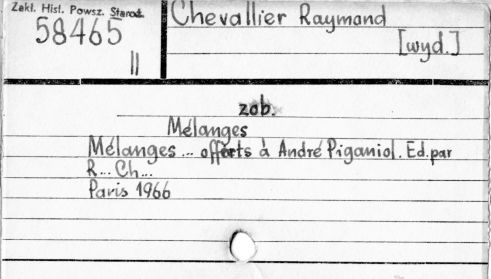 Zakł. Hist. Powsz. Staroż.
58465
II
Chevallier Raymond
[wyd.]
zob.
Mélanges
Mélanges ... offerts à André Piganiol. Ed. par
R... Ch...
Paris 1966